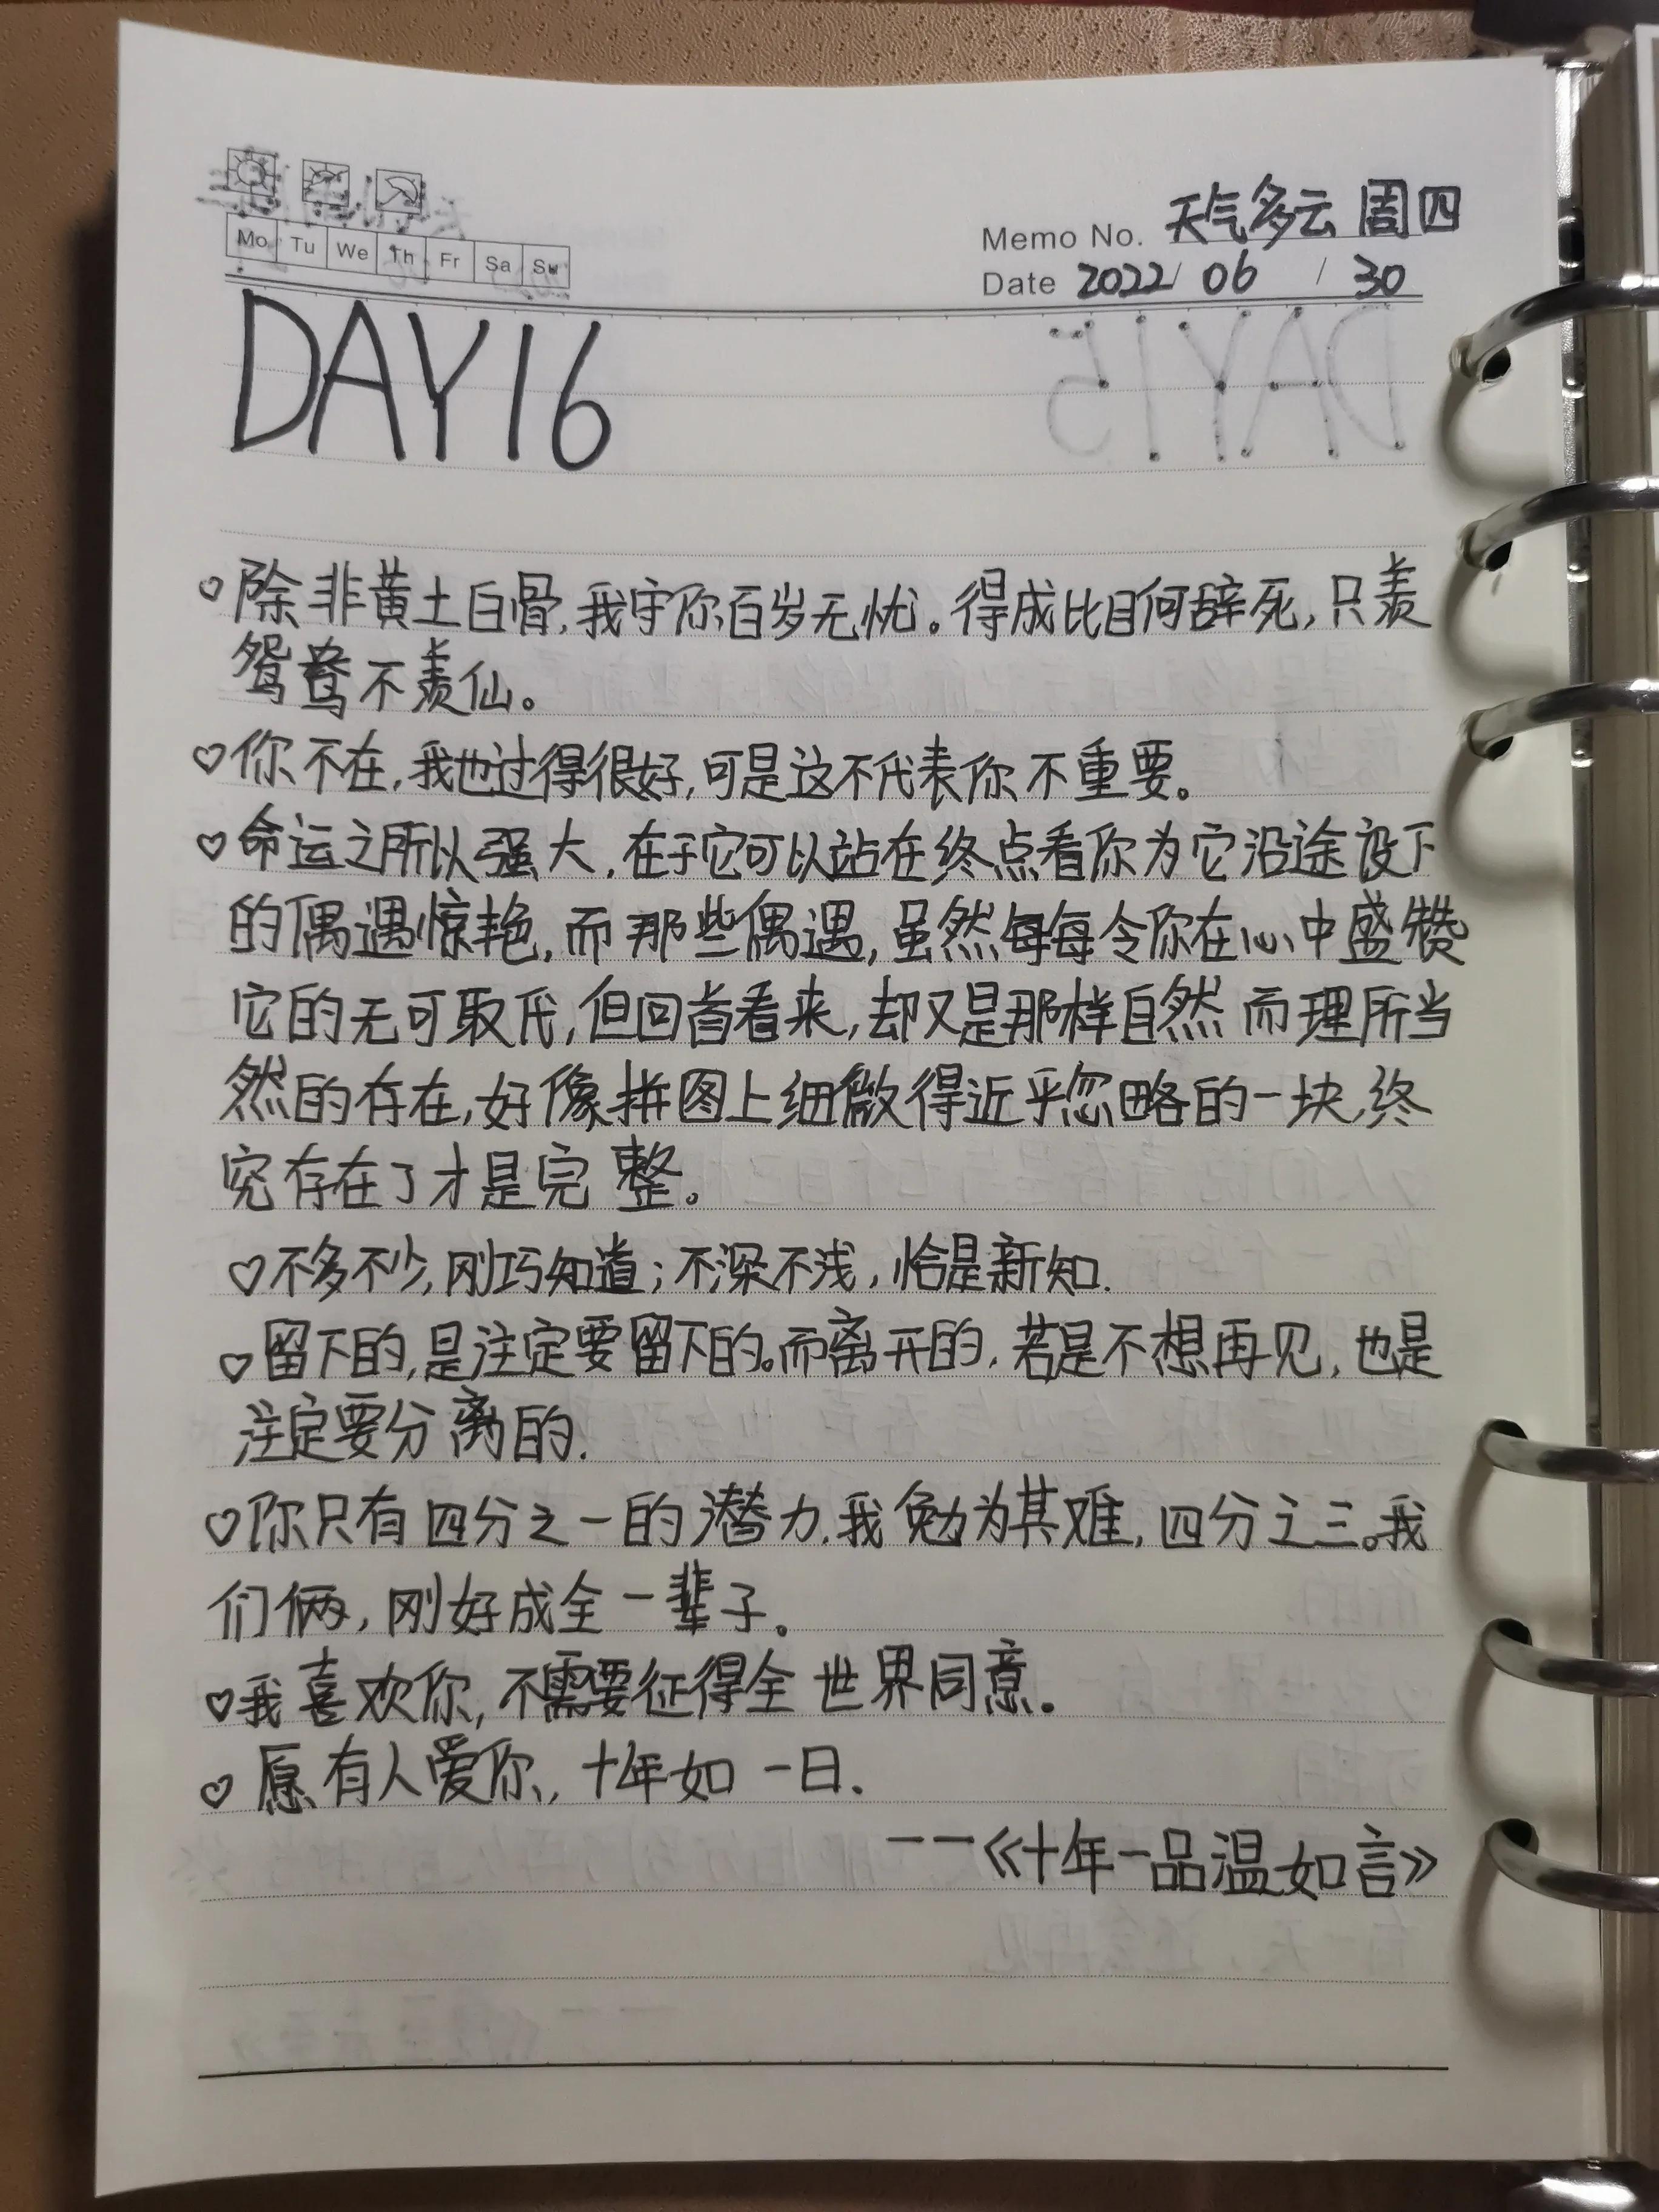 Memo No. 天气多云 周四
Mo Tu We Th Fr Sa Su
Date 2022/ 06 / 30
DAY16
♡除非黄土白骨,我守你百岁无忧。得成比目何辞死,只羡
鸳鸯不羡仙。
♡你不在,我也过得很好,可是这不代表你不重要。
♡命运之所以强大,在于它可以站在终点看你为它沿途设下
的偶遇惊艳,而那些偶遇,虽然每每令你在心中盛赞
它的无可取代,但回首看来,却又是那样自然而理所当
然的存在,好像拼图上细微得近乎忽略的一块,终
究存在了才是完整。
♡不多不少,刚巧知道;不深不浅,恰是新知.
♡留下的,是注定要留下的。而离开的,若是不想再见,也是
注定要分离的.
♡你只有四分之一的潜力,我勉为其难,四分之三。我
们俩,刚好成全一辈子。
♡我喜欢你,不需要征得全世界同意。
♡愿有人爱你,十年如一日.
——《十年一品温如言》